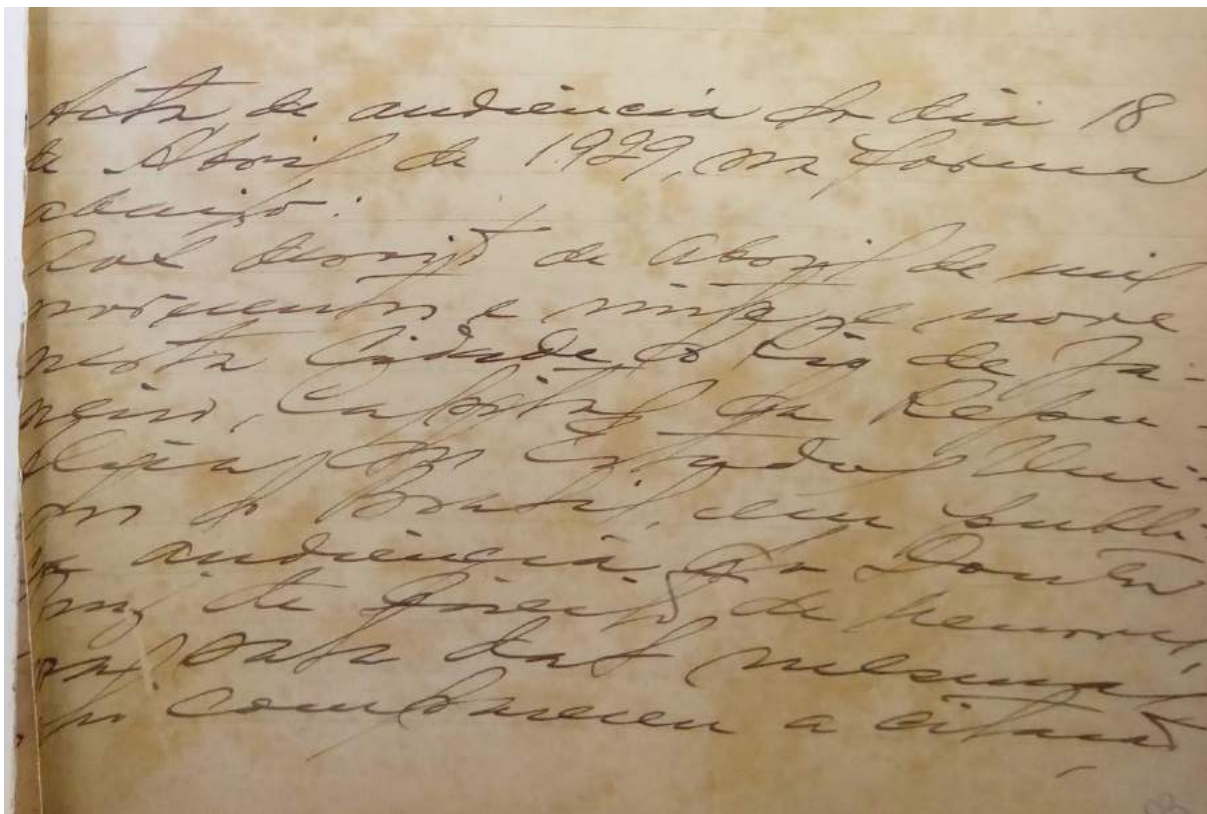 Acta de audiencia do dia 18
de Abril de 1929, na forma
abaixo:
Aos dezoito de Abril de mil
novecentos e vinte e nove
nesta Cidade do Rio de Ja-
neiro, Capital da Repu-
blica dos Estados Uni-
dos do Brasil, em publi-
ca audiencia do Doutor
Juiz de Direito de Menores,
data das mesmas,
compareceu a